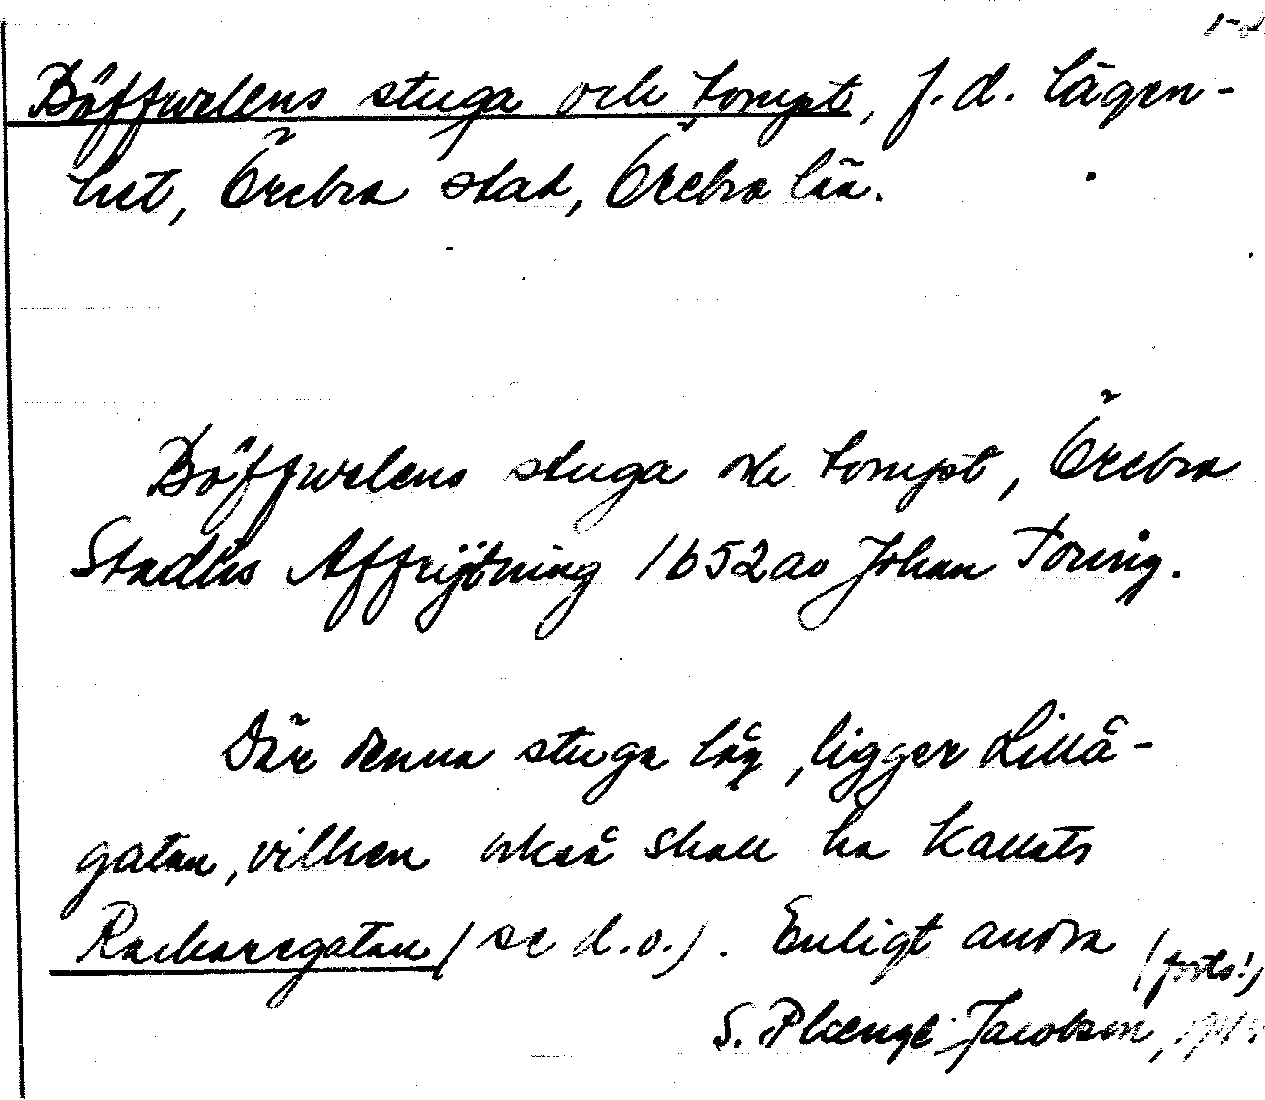 Böffwelens stuga och tompt, f.d. lägen-
het, Örebro stad, Örebro län.
Böffwelens stuga och tompt, Örebro
Stadhs Affrijtning 1652 av Johan Töring.
Där denna stuga låg, ligger Lillå-
gatan, vilken också skall ha kallats
Rackaregatan (se d.o.). Enligt andra (forts!)
S. Plænge-Jacobson,